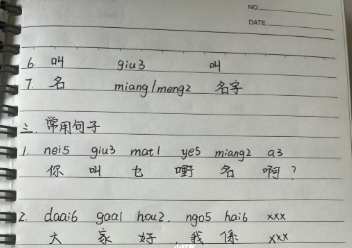 NO.
DATE
6. 叫 giu3 叫
7. 名 miang/meng2 名字
三. 常用句子
1. nei5 giu3 mat1 ye5 miang2 a3
你 叫 乜 嘢 名 啊？
2. daai6 gaa1 hou2. ngo5 hai6 xxx
大 家 好 我 係 xxx